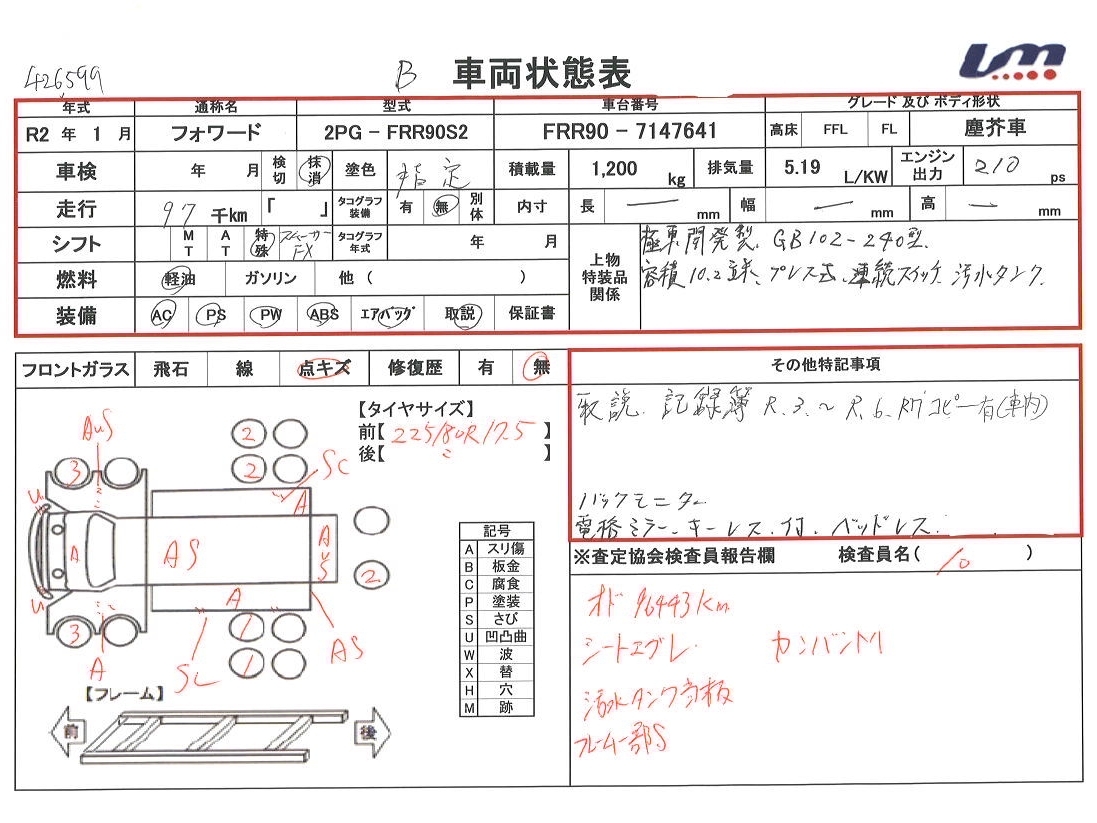 426599 B 車両状態表 um
年式 通称名 型式 車台番号 グレード 及び ボディ形状
R2 年 1 月 フォワード 2PG - FRR90S2 FRR90 - 7147641 高床 FFL FL 塵芥車
車検 年 月 検切 抹消 塗色 指定 積載量 1,200 kg 排気量 5.19 L/KW エンジン出力 210 ps
走行 97 千km 「 」 タコグラフ装備 有 無 別体 内寸 長 ― mm 幅 ― mm 高 ― mm
シフト MT AT 特殊 スムーサーFX タコグラフ年式 年 月
上物特装品関係
極東開発製、GB102-240型、
容積10.2立米、プレス式、連続スイッチ、汚水タンク.
燃料 軽油 ガソリン 他 ( )
装備 AC PS PW ABS エアバッグ 取説 保証書
フロントガラス 飛石 線 点キズ 修復歴 有 無
その他特記事項
取説、記録簿 R.3.~R.6.R7コピー有(車内)
バックモニター
電格ミラー、キーレス付、ベッドレス、
【タイヤサイズ】
前【 225/80R17.5 】
後【 〃 】
AuS
3
2
2
SC
A
U
A
AS
AUS
2
U
A
3
A
SC
1
1
AS
記号
A スリ傷
B 板金
C 腐食
P 塗装
S さび
U 凹凸曲
W 波
X 替
H 穴
M 跡
【フレーム】
前 後
※査定協会検査員報告欄 検査員名( 10 )
オド 96443km
シートエグレ. カンバントリ
汚水タンク当板
フレーム一部S